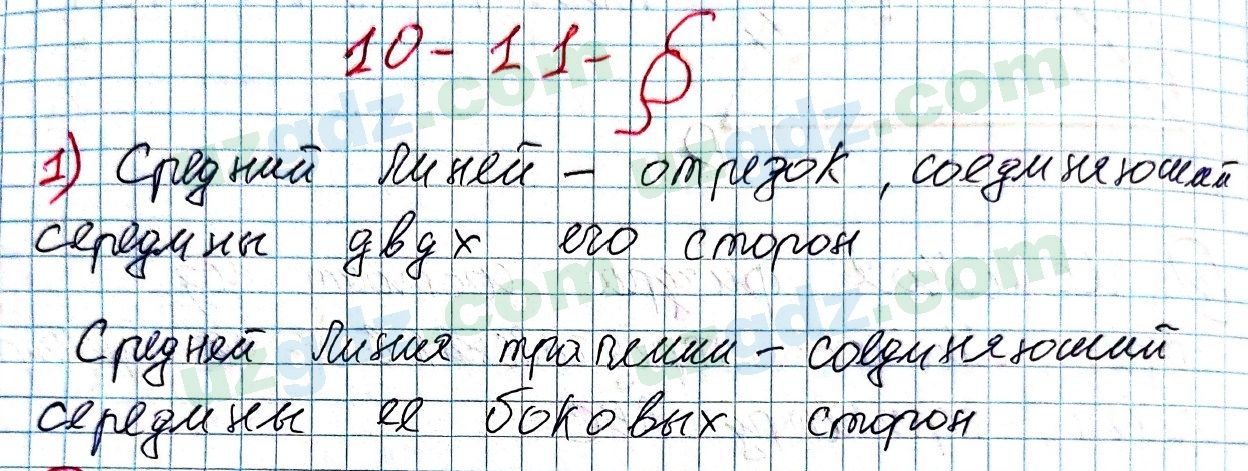 10-11-§
1) Средний линей - отрезок, соединяюший
середины двдх его сторон
Средней линия трапеции - соединяюший
середины ее боковых сторон
uzgdz.com
uzgdz.com
uzgdz.com
uzgdz.com